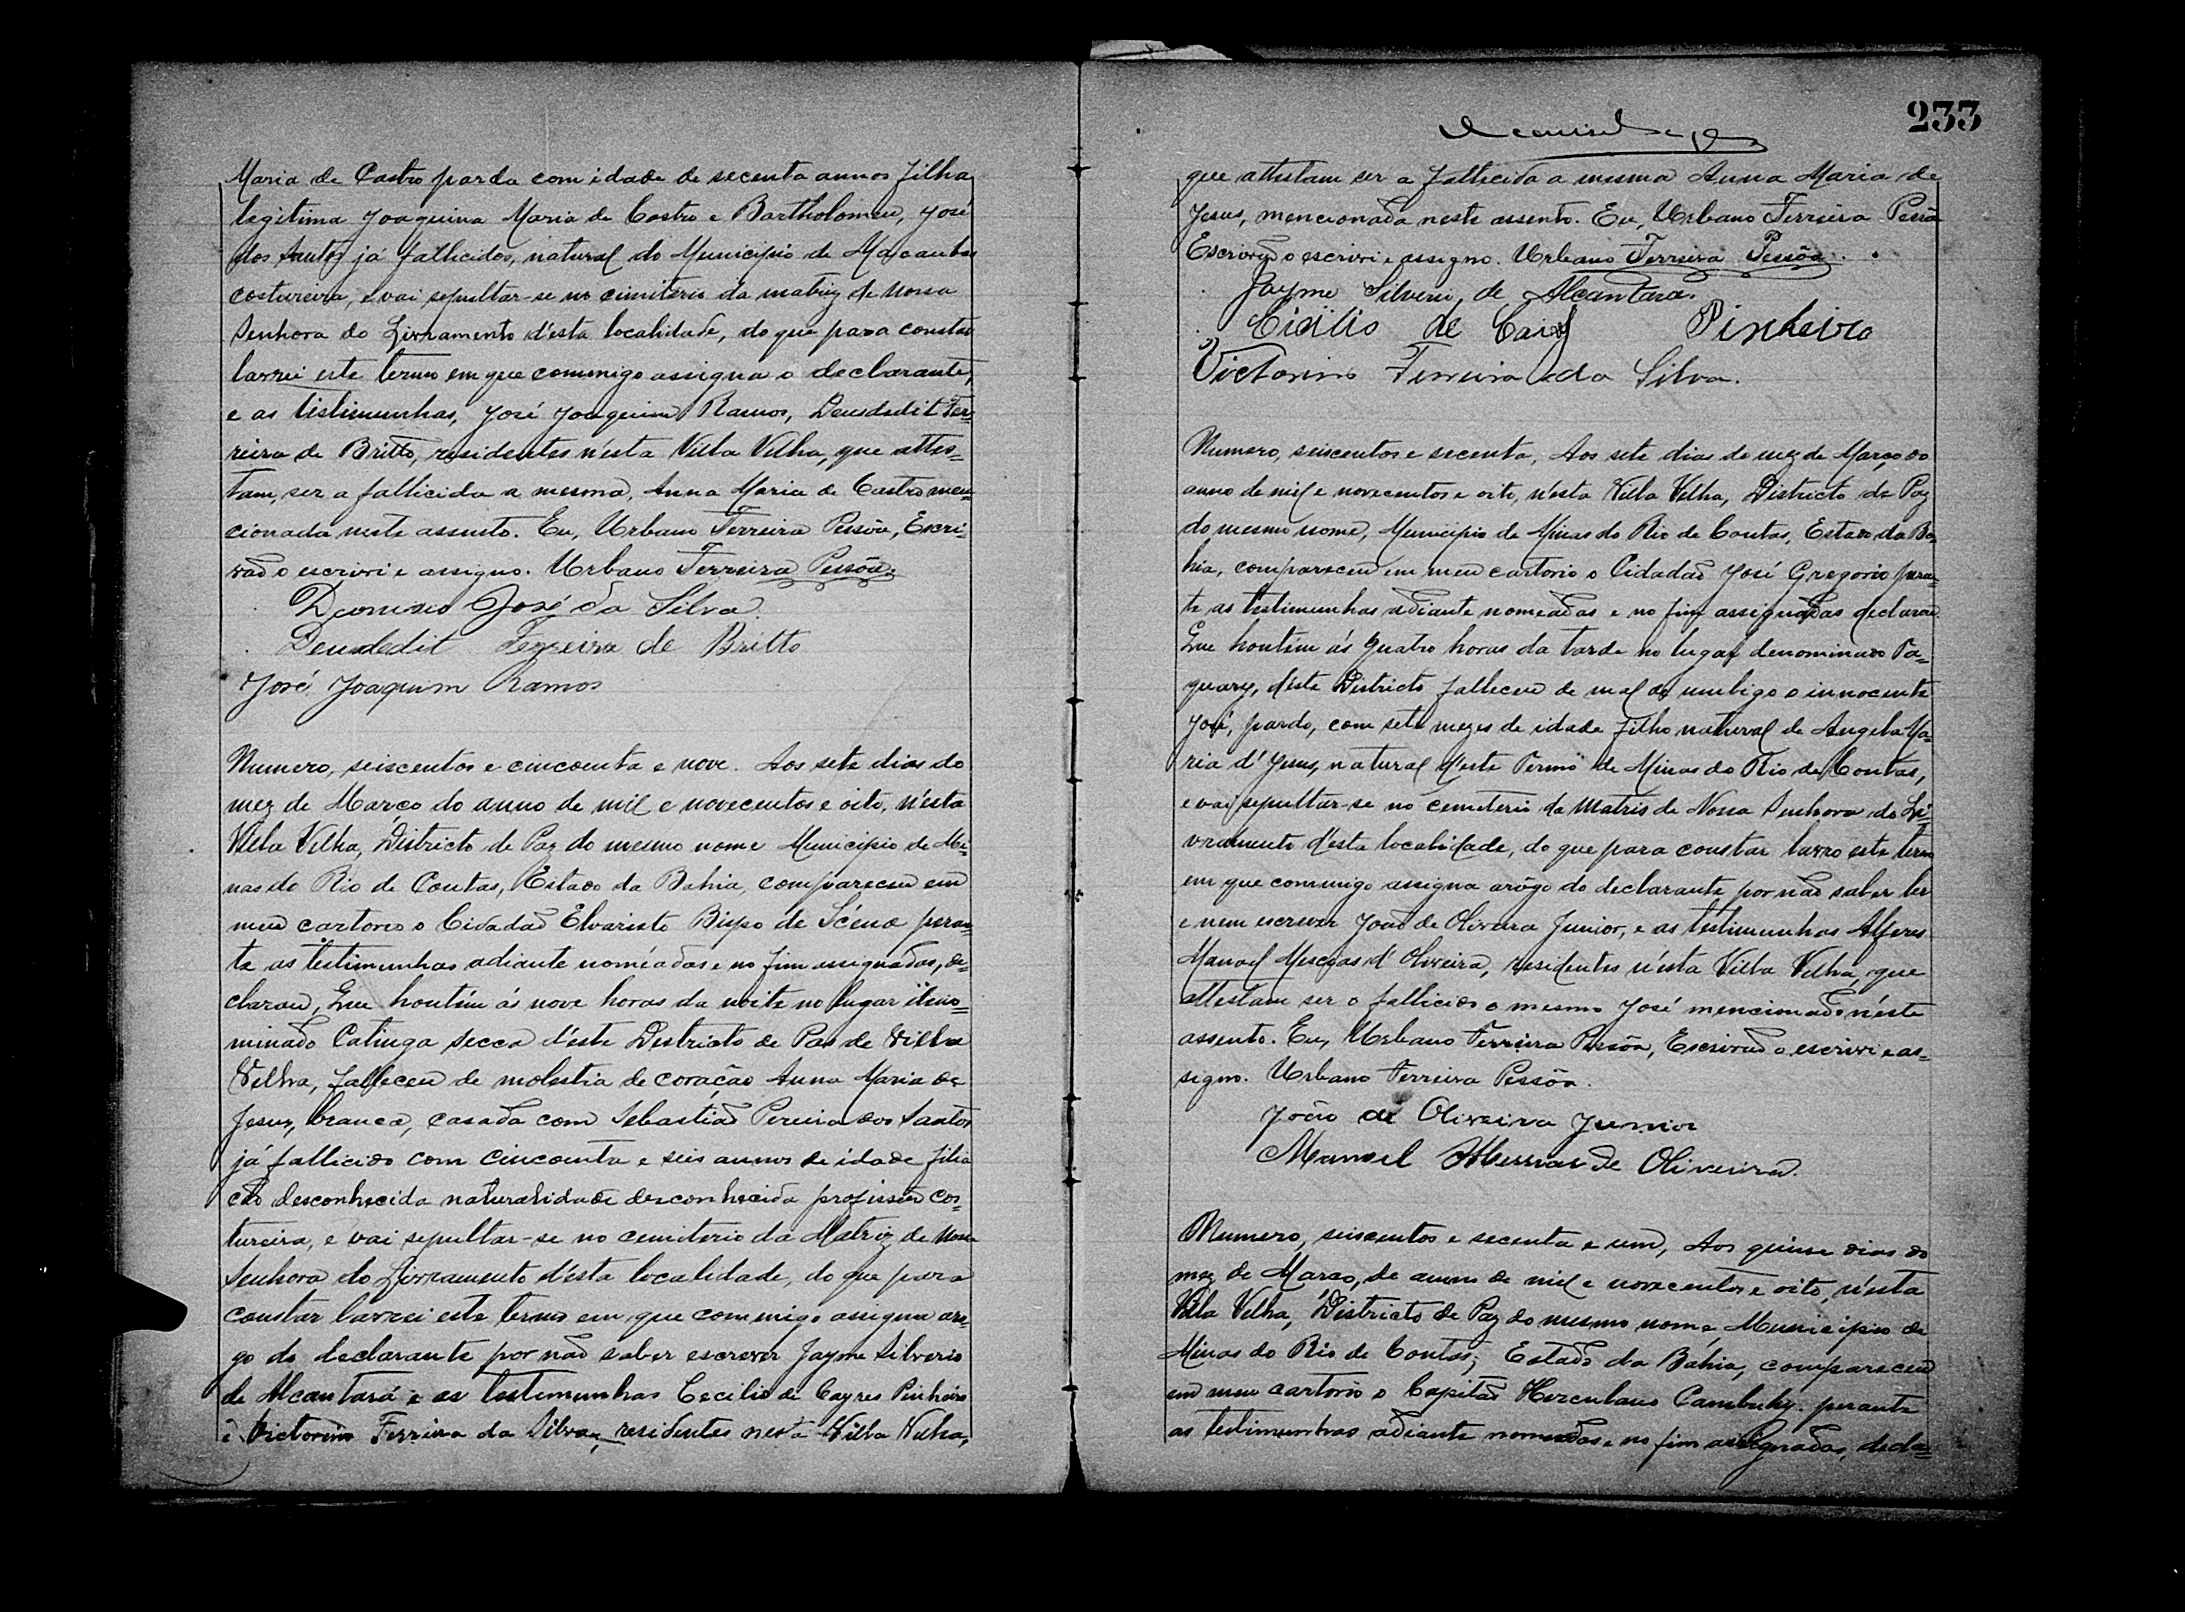 Maria de Castro parda com idade de secenta annos filha
legitima Joaquina Maria de Castro e Bartholomeu, José
dos Santos já fallicidos, natural do Municipio de Macaubas
costureira, e vai sepultar-se no cimiterio da matriz de Nossa
Senhora do Livramento d'esta localidade, do que para constar
lavrei este termo em que commigo assigna o declarante,
e as testimunhas, José Joaquim Ramos, Deusdedit Fer=
reira de Britto, residentes n'esta Villa Velha, que attes=
tam, ser a fallicida a mesma, Anna Maria de Castro men
cionada neste assento. Eu, Urbano Ferreira Pessôa, Escri=
vão o escrivi e assigno. Urbano Ferreira Pessôa.
Dionisio José da Silva.
Deusdedit Ferreira de Britto
José Joaquim Ramos
Numero, seiscentos e cincoenta e nove. Aos sete dias do
mez de Março do anno de mil e novecentos e oito, n'esta
Villa Velha, Districto de Paz do mesmo nome Municipio de Mi=
nas do Rio de Contas, Estado da Bahia, compareceu em
meu cartorio o Cidadão Elvaristo Bispo de Scéna peran=
te as testimunhas adiante noméadas e no fim assignadas, de=
clarou, Que hontém ás nove horas da noite no lugar deno=
minado Catinga Secca d'este Destricto de Paz de Villa
Velha, falleceu de molestia de coração Anna Maria de
Jesus, branca, casada com Sebastião Pereira dos Santos
já fallicido com cincoenta e seis annos de idade filia
cão desconhecida naturalidade desconhecida profissão cos=
tureira, e vai sepultar-se no cemiterio da Matriz de Nossa
Senhora do Livramento d'esta localidade, do que para
constar lavrei este termo em que commigo assigna aro=
go do declarante por não saber escrever Jayme Silverio
de Alcantará e as testimunhas Cecilio de Cayres Pinheiro
e Victorino Ferreira da Silva, residentes nesta Villa Velha,
233
que attestam ser a fallecida a mesma Anna Maria de
Jesus, mencionada neste assento. Eu, Urbano Ferreira Pessôa
Escrivão o escrivi e assigno. Urbano Ferreira Pessôa.
Jayme Silverio, de Alcantara.
Cicilio de Pinheiro
Victorino Ferreira da Silva.
Numero, seiscentos e secenta, Aos sete dias do mez de Março do
anno de mil e novecentos e oito, n'esta Villa Velha, Districto de Paz
do mesmo nome, Municipio de Minas do Rio de Contas, Estado da Ba=
hia, compareceu em meu cartorio o Cidadão José Gregorio peran=
te as testimunhas adiante nomeadas e no fim assignadas declarou
Que hontém ás quatro horas da tarde no lugar denominado Ta=
quary, d'este Districto falleceu de mal de umbigo o innocente
José, pardo, com sete mezes de idade filho natural de Angela Ma=
ria d'Jesus, natural d'este Termo de Minas do Rio de Contas,
e vai sepultar-se no cemeterio da Matris de Nossa Senhora do Li=
vramento d'esta localidade, do que para constar lavro este termo
em que commigo assigna arôgo do declarante por não saber ler
e nem escrever João de Oliveira Junior, e as testimunhas Alferes
Manoel d'Oliveira, residentes n'ésta Villa Velha, que
attestam ser o fallicido o mesmo José mencionado n'éste
assento. Eu, Urbano Ferreira Pessôa, Escrivão o escrivi e as=
signo. Urbano Ferreira Pessôa.
João de Oliveira Junior
Manoel de Oliveira.
Numero, seiscentos e secenta e um, Aos quinse dias do
mez de Março, de anno de mil e novecentos e oito, n'esta
Villa Velha, Districto de Paz do mesmo nome, Municipio de
Minas do Rio de Contas, Estado da Bahia, compareceu
em meu cartorio o Capitão Herculano Cambuhy perante
as testimunhas adiante nomeadas e no fim assignadas, decla=